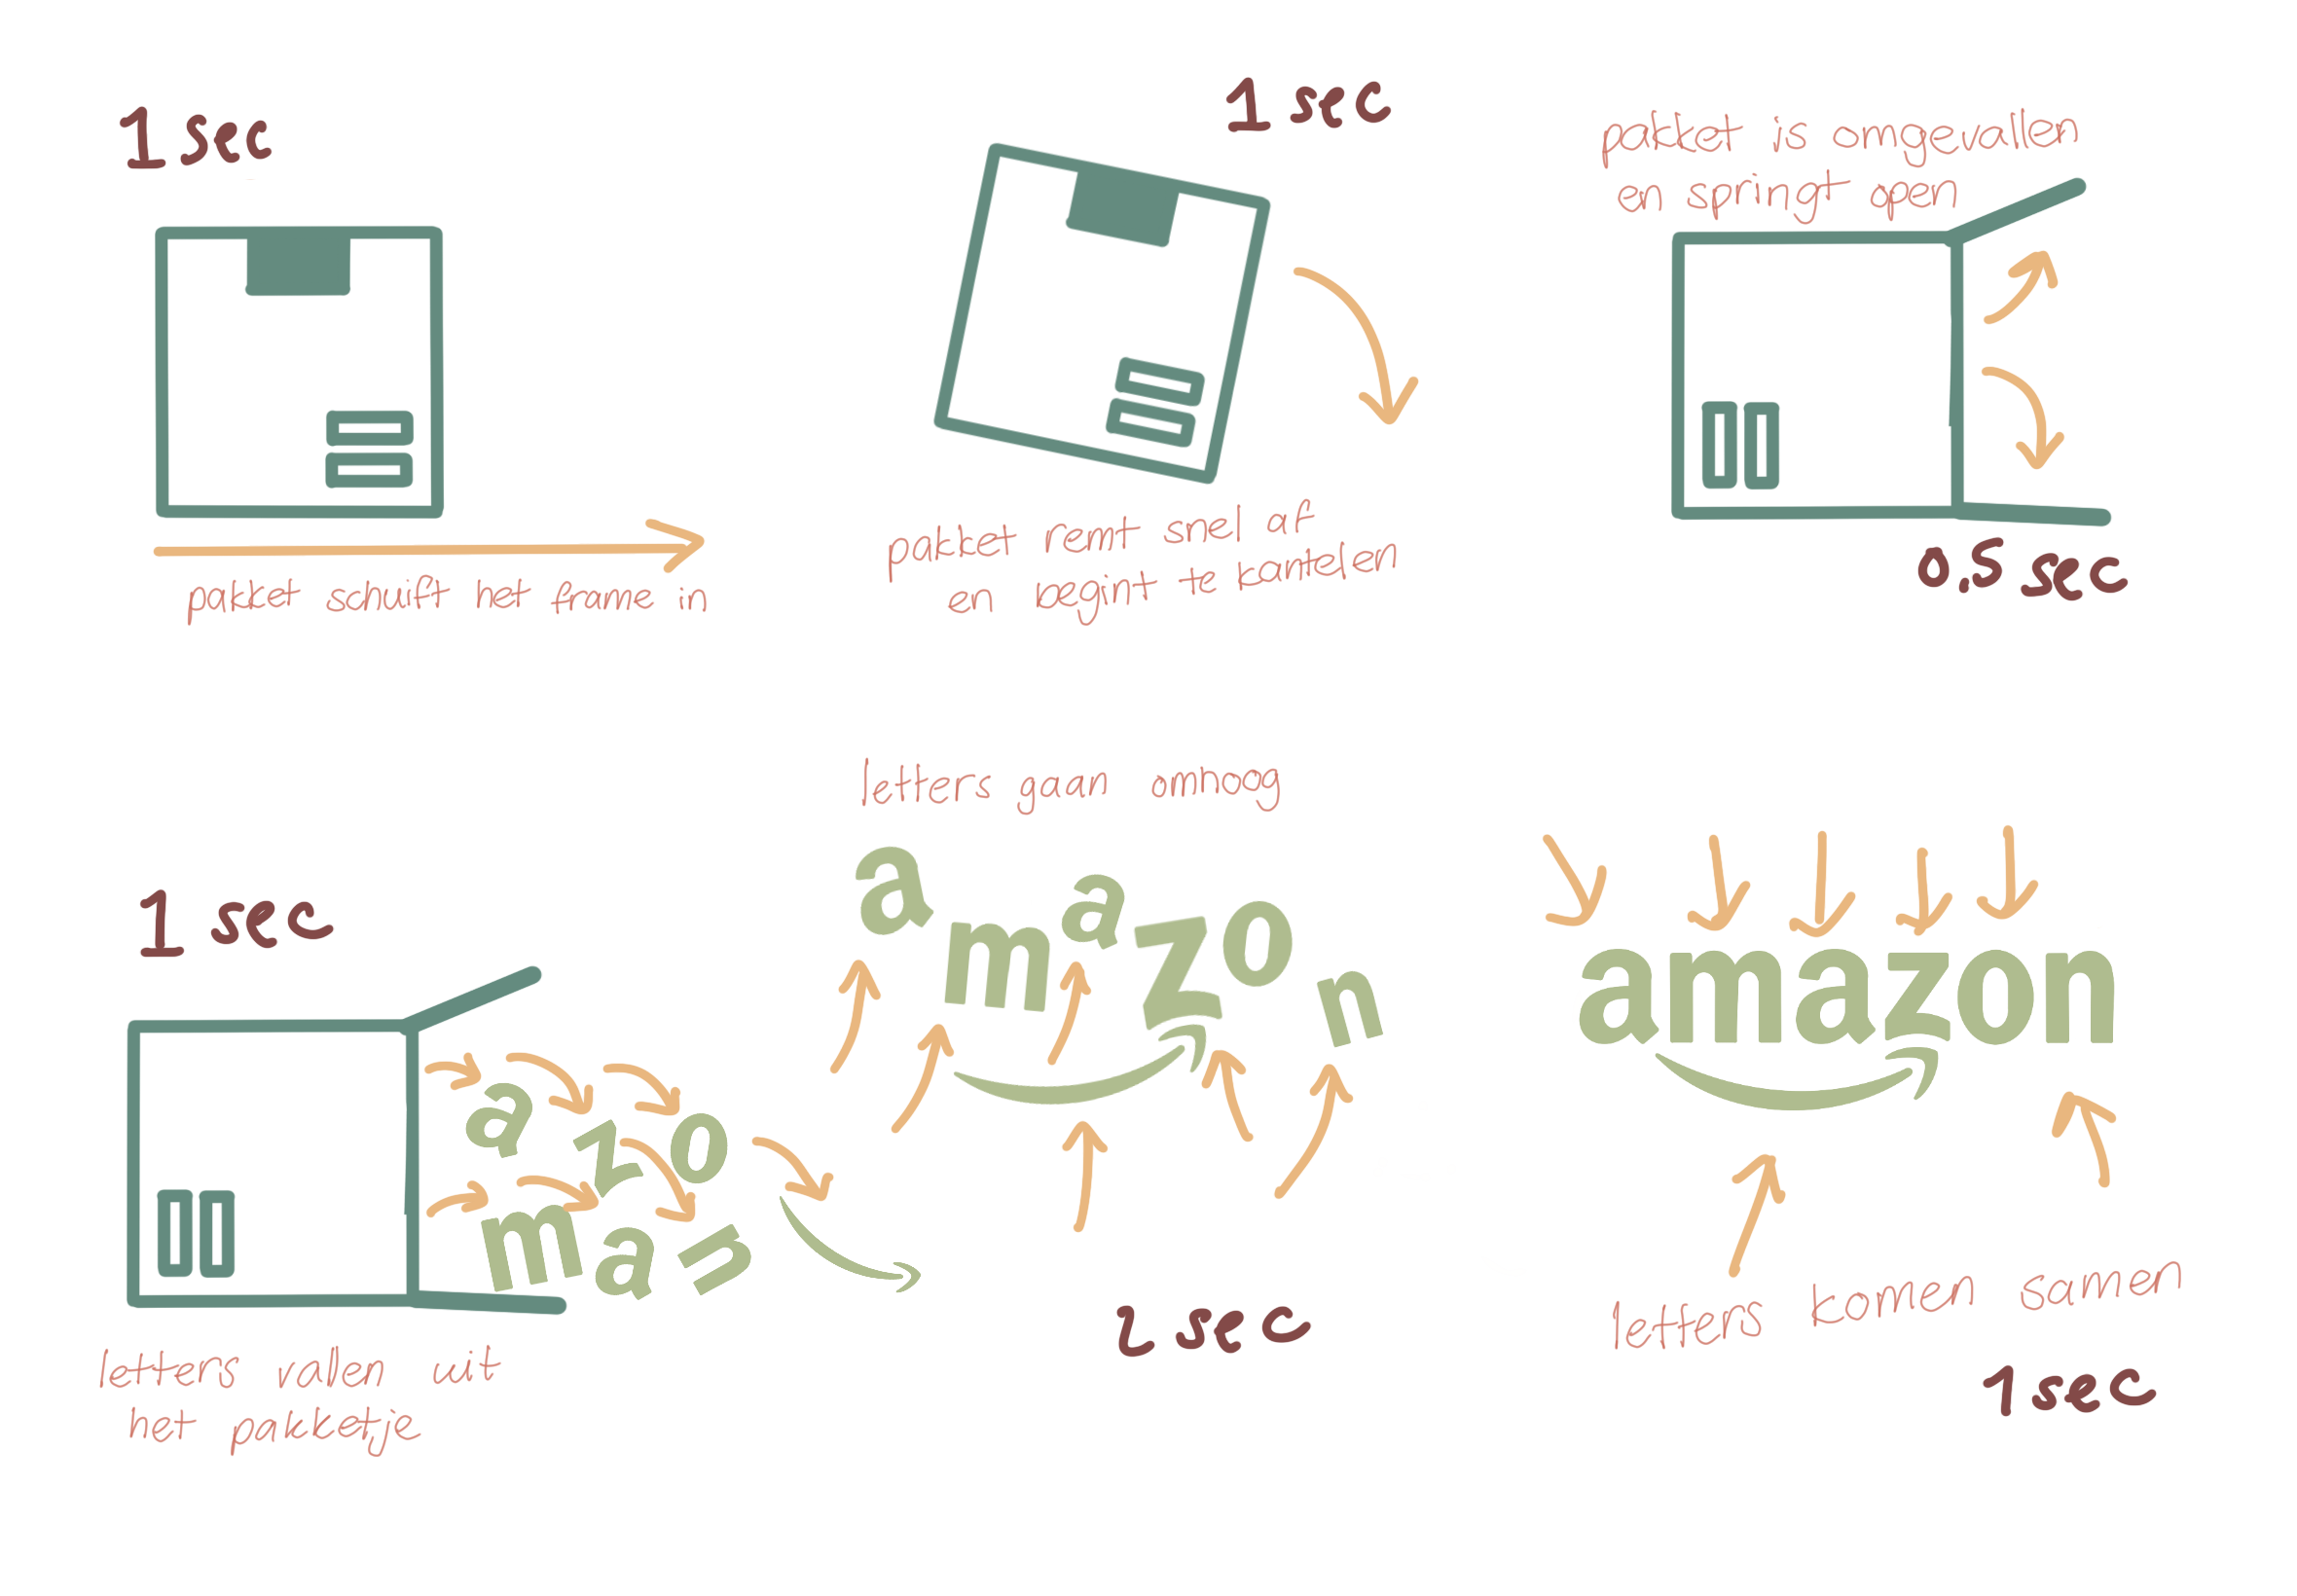 1 sec
pakket schuift het frame in
1 sec
pakket remt snel af
en begint te kantelen
pakket is omgevallen
en springt open
0.5 sec
1 sec
a z o
m a n
letters vallen uit
het pakketje
letters gaan omhoog
amazon
2 sec
amazon
letters komen samen
1 sec